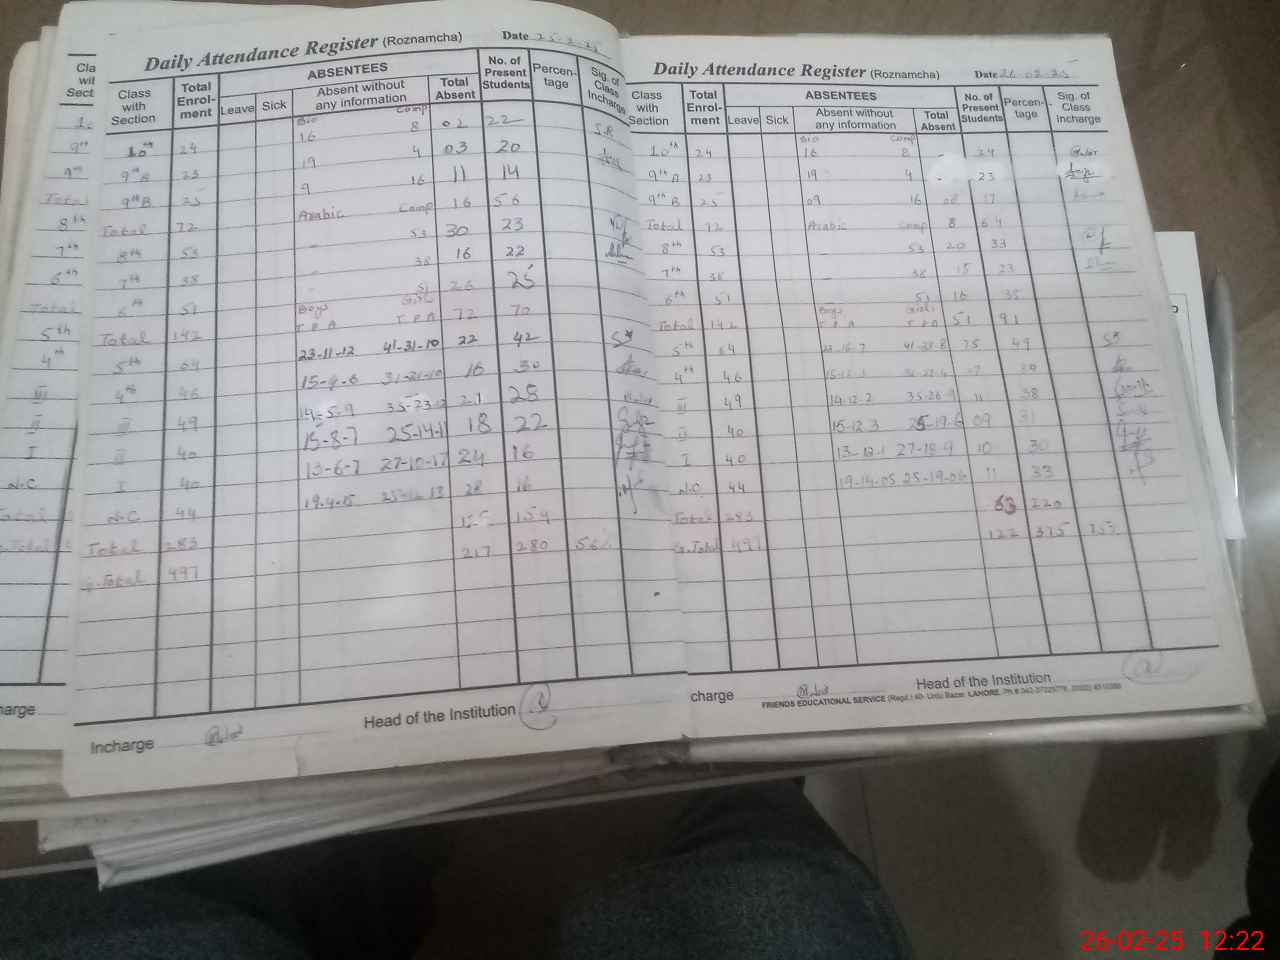 Cla
wit
Sect
9th
Total
8th
7th
6th
Total
5th
4th
III
II
I
N.C
Daily Attendance Register (Roznamcha) Date
Class with Section Total Enrol-ment ABSENTEES Leave Sick Absent without any information Total Absent No. of Present Students Percen-tage Sig. of Class Incharge
Bio Comp
10th 24 16 8 02 22 S.R
9th A 23 19 4 03 20
9th B 25 9 16 11 14
Total 72 Arabic Comp 16 56
8th 53 - 53 30 23
7th 38 - 38 16 22
6th 51 Boys Girls 51 26 25
Total 142 T.P.A T.P.A 72 70
5th 64 23-11-12 41-31-10 22 42
4th 46 15-9-6 31-21-10 16 30
III 49 14-5-9 35-23-12 21 28
II 40 15-8-7 25-14-11 18 22
I 40 13-6-7 27-10-17 24 16
N.C 44 19-4-15 28 16
Total 283 154
G.Total 497 217 280 56%
Incharge
Head of the Institution
Daily Attendance Register (Roznamcha) Date 26-02-25
Class with Section Total Enrol-ment ABSENTEES Leave Sick Absent without any information Total Absent No. of Present Students Percen-tage Sig. of Class Incharge
Bio Comp
10th 24 16 8 24
9th A 23 19 4 - 23
9th B 25 09 16 08 17
Total 72 Arabic Comp 8 64
8th 53 - 53 20 33
7th 38 - 38 15 23
6th 51 - 51 16 35
Total 142 Boys Girls T.P.A T.P.A 51 91
5th 64 23-16-7 41-33-8 15 49
4th 46 39
III 49 14-12-2 35-26-9 11 38
II 40 15-12-3 25-19-6 09 31
I 40 13-12-1 27-18-9 10 30
N.C 44 19-14-05 25-19-06 11 33
Total 283 63 220
G.Total 497 122 375
charge
Head of the Institution
FRIENDS EDUCATIONAL SERVICE (Regd.) 40- Urdu Bazar LAHORE.
26-02-25 12:22